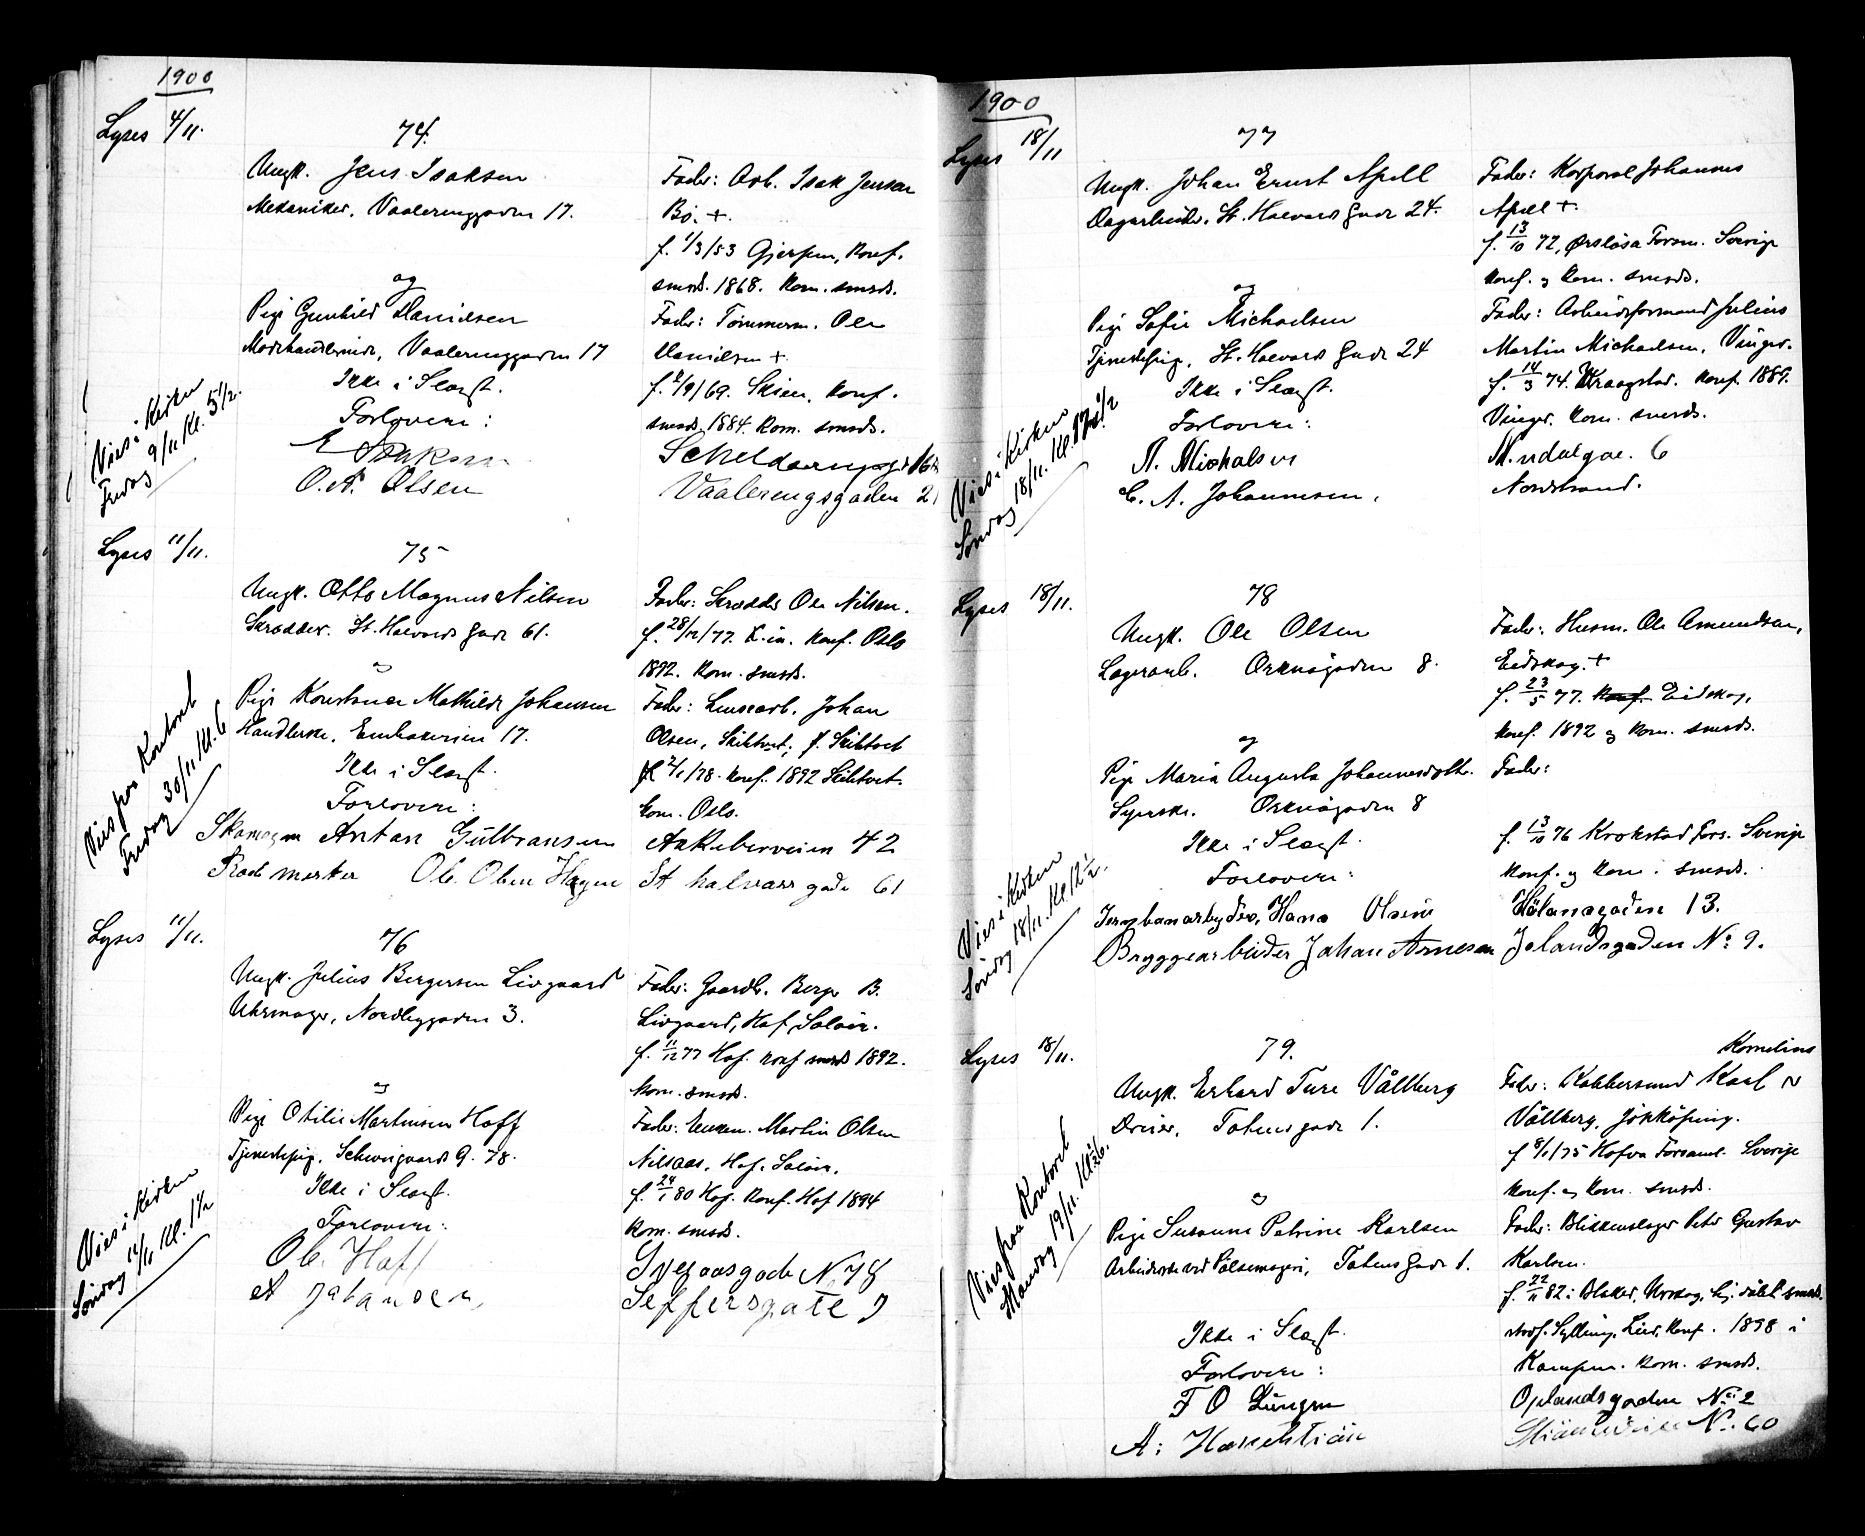 1900
Lyses 4/11.
74.
Ungk. Jens Isaksen
Mekaniker, Vaalerenggaden 17.
og
Pige Gunhild Danielsen
Modehandlerinde, Vaalerenggaden 17
Ikke i Slægt.
Forlovere:
E Isaksen
O. A. Olsen
Fader: Arb. Isak Jensen
Bö. +.
f. 1/3/53 Gjerpen, Konf.
smsds. 1868. Kom. smsds.
Fader: Tömmerm. Ole
Danielsen +
f. /9/69. Skien. Konf.
smsds. 1884. Kom. smsds.
Vaalerengsgaden 21
Vies i Kirken
Fredag 9/11 Kl. 5 1/2.
Lyses 11/11.
75
Ungk. Otto Magnus Nilsen
Skrædder. St. Halvards Gade 61.
og
Pige Konstanse Mathilde Johansen
Handlerske, Enebakveien 17.
Ikke i Slægt.
Forlovere:
Skomager Anton Gulbransen
Rodemester Ole Olsen Hagen
Fader: Skrædder Ole Nilsen.
f. 28/12/77. K.in. Konf. Oslo
1892. Kom. smsds.
Fader: Johan
Olsen, Skibtvet. f. Skibtvet
2/1/78. Konf. 1892 Skibtvet.
Kom. Oslo.
Ankeberveien 42
St halvars gade 61
Vies paa Kontoret
Fredag 30/11 Kl. 6
Lyses 11/11.
76
Ungk. Julius Bergersen Livgaard
Uhrmager, Nordbygaden 3.
og
Pige Otilie Martinsen Hoff
Tjenestepige. Schweigaards G. 78.
Ikke i Slægt.
Forlovere:
Ole Hoff
A Johansen
Fader: Gaardbr. Berger B.
Livgaard, Hof, Solör.
f. 11/12 77 Hof. Konf smsds 1892.
Kom. smsds.
Fader: Martin Olsen
Nilsaas, Hof. Solör.
f. 24/1 80 Hof. Konf. Hof 1894
Kom. smsds.
Svegaasgade N. 78
Seffersgate 9
Vies i Kirken
Söndag 11/11 Kl. 1 1/2
1900
Lyses 18/11
77
Ungk. Johan Ernst Apell
Dagarbeider. St. Halvards Gade 24.
og
Pige Sofie Michaelsen
Tjenestepige, St. Halvards Gade 24
Ikke i Slægt.
Forlovere:
A. Michalsen
C. A. Johannesen.
Fader: Korporal Johannes
Apell +.
f. 13/10 72, Örslösa Forsm. Sverige
Konf. og Kom. smsds.
Fader: Arbeidsformand Julius
Martin Michaelsen, Vinger.
f. 14/3 74. Kraagstad. Konf. 1889.
Vinger. Kom. smsds.
6
Nordstrand.
Vies i Kirken
Söndag 18/11. Kl.
Lyses 18/11.
78
Ungk. Ole Olsen
Lagerarb. Orknögaden 8.
og
Pige Maria Augusta Johannesdotter.
Syerske. Orknögaden 8
Ikke i Slægt.
Forlovere:
Jernbanarbyder, Hans Olsen
Bryggearbeider Johan Arnesen
Fader: Husm. Ole Amundsen,
Eidskog. +
f. 23/5 77. Konf. Eidskog,
Konf. 1892 og Kom. smsds.
Fader:
f. 13/10 76 Krokstad Fors. Sverige
Konf. og Kom. smsds.
Hölansgaden 13.
Jolandsgaden No 9.
Vies i Kirken
Söndag 18/11. Kl. 12 1/2.
Lyses 18/11.
79.
Ungk. Erhard Ture Vållberg
Dreier, Totensgade 1.
og
Pige Susanne Petrine Karlsen
Arbeiderske ved Pölsemageri, Totensgade 1.
Ikke i Slægt.
Forlovere:
F O
A:
Kornelius
Fader: Kobbersmed Karl
Vållberg, Jönköping.
f 8/1/75 Hofva Forsaml. Sverige
Konf. og Kom. smsds.
Fader: Blikkenslager Peter Gustav
Karlsen.
f. 22/11 82 i Blaker, Urskog, hj. döbt smsds.
stadf. Sylling, Lier, Konf. 1898 i
Kampen. Kom. smsds.
Oplandsgaden No 2
No. 60
Vies paa Kontoret
Mandag 19/11. Kl. 6.